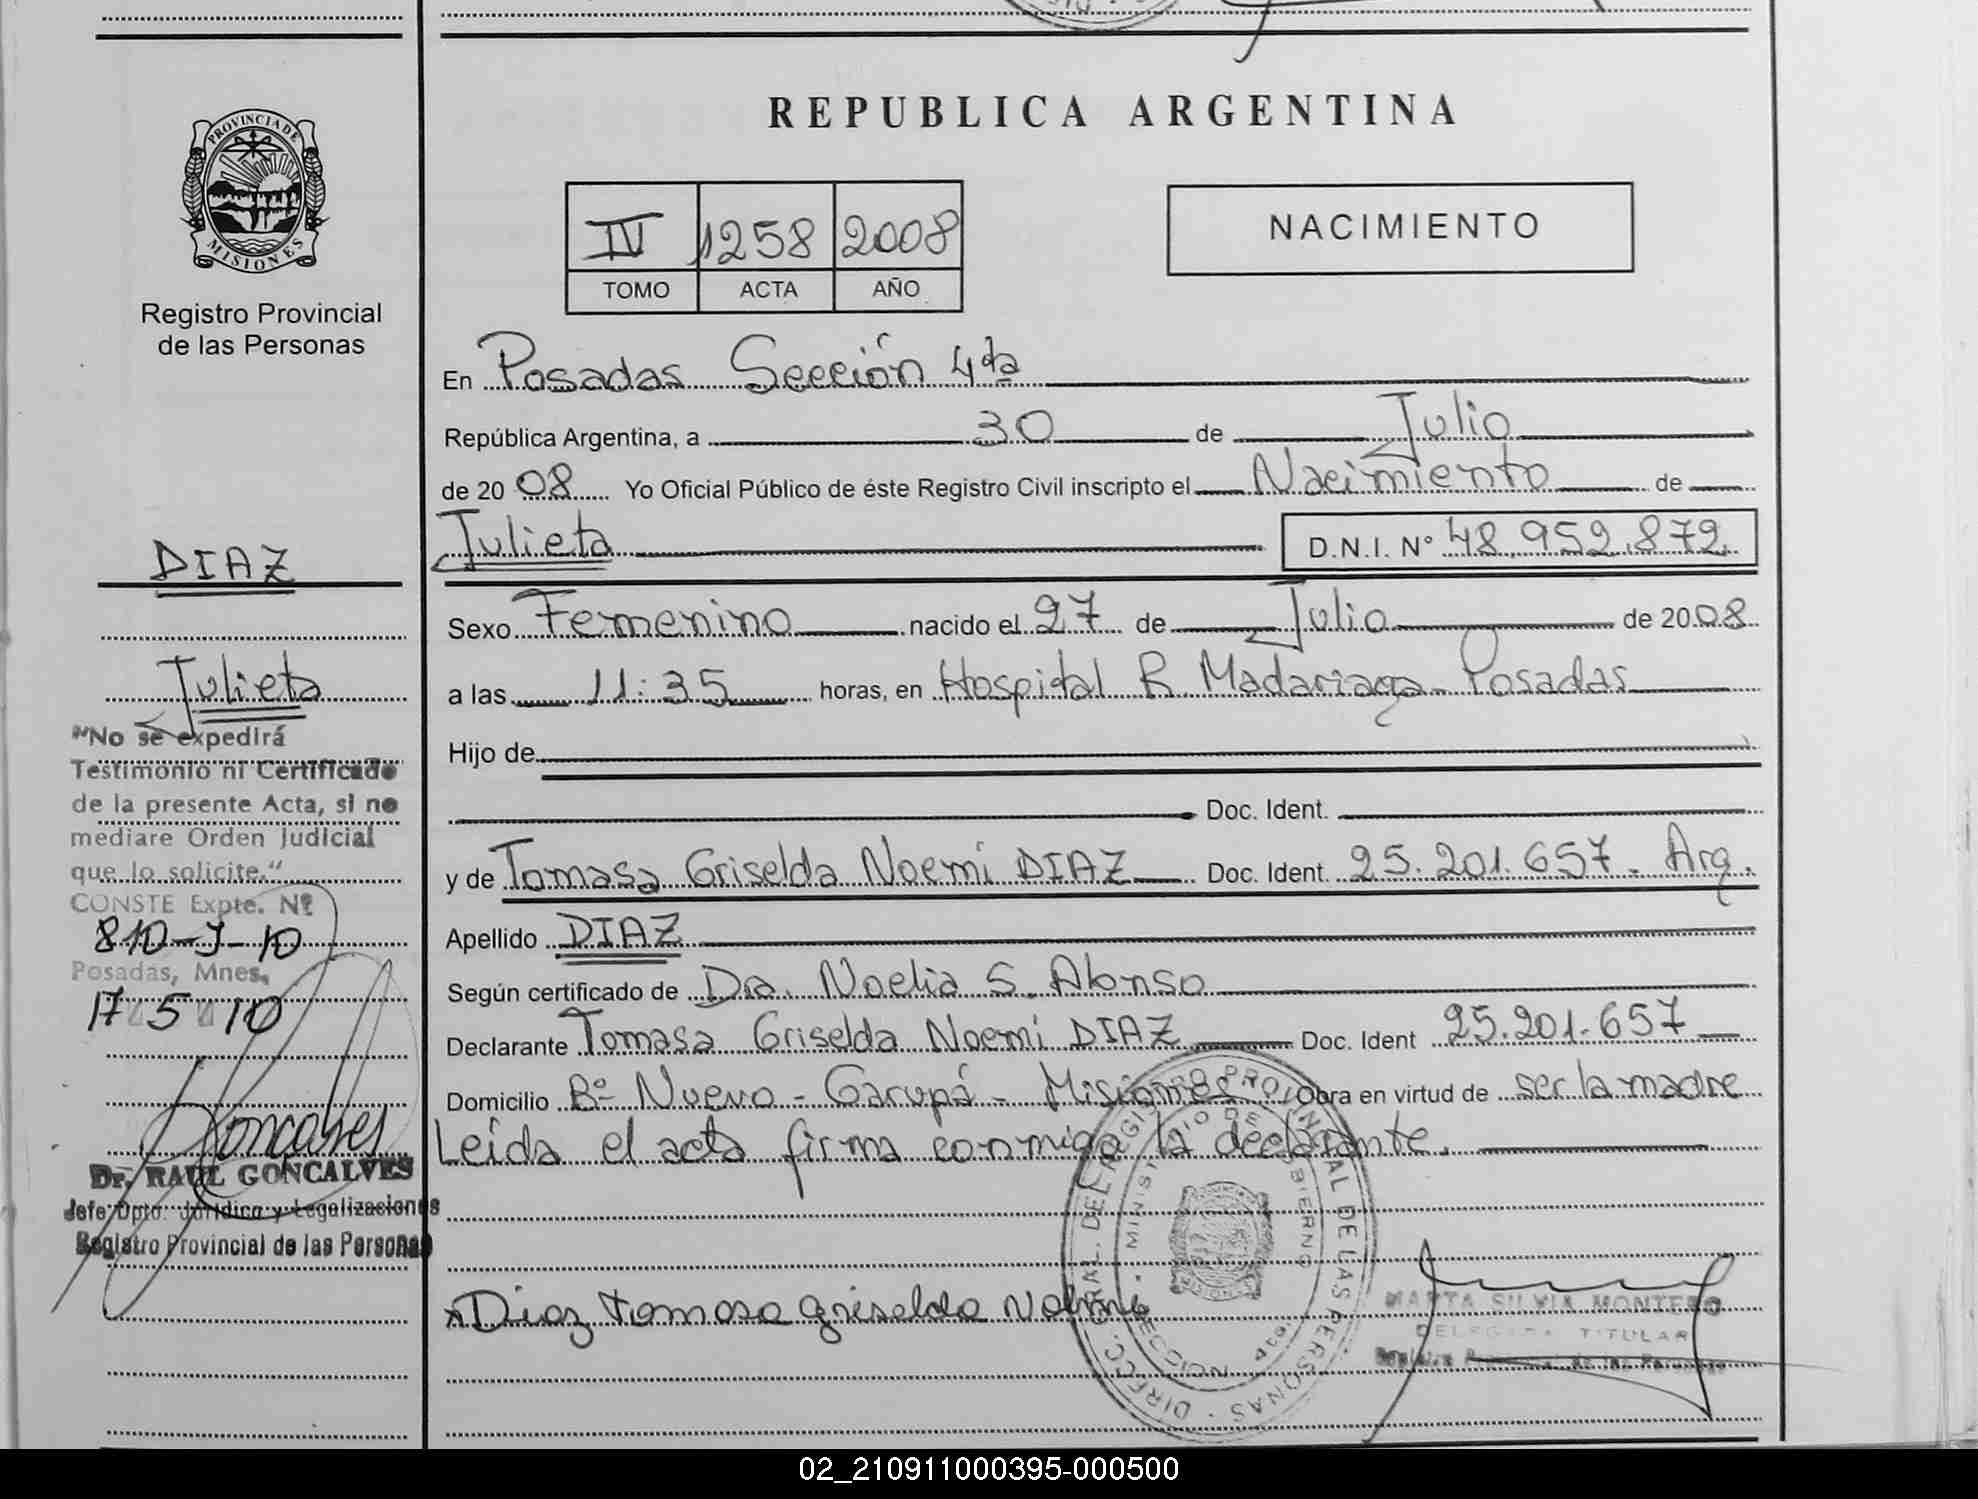 PROVINCIA DE
MISIONES
Registro Provincial
de las Personas
DIAZ
Julieta
"No se expedirá
Testimonio ni Certificado
de la presente Acta, si no
mediare Orden Judicial
que lo solicite."
CONSTE Expte. Nº
810-J-10
Posadas, Mnes,
17 5 10
Goncalves
Dr. RAUL GONCALVES
Jefe Dpto. Jurídico y Legalizaciones
Registro Provincial de las Personas
REPUBLICA ARGENTINA
IV 1258 2008
TOMO ACTA AÑO
NACIMIENTO
En Posadas Sección 4ta
República Argentina, a 30 de Julio
de 20 08 Yo Oficial Público de éste Registro Civil inscripto el Nacimiento de
Julieta D.N.I. Nº 48.952.872
Sexo Femenino nacido el 27 de Julio de 20 08
a las 11:35 horas, en Hospital R. Madariaga Posadas
Hijo de
Doc. Ident.
y de Tomasa Griselda Noemi DIAZ Doc. Ident. 25.201.657. Arg.
Apellido DIAZ
Según certificado de Dra. Noelia S. Alonso
Declarante Tomasa Griselda Noemi DIAZ Doc. Ident 25.201.657
Domicilio Bº Nuevo - Garupá - Misiones Obra en virtud de ser la madre
Leída el acta firma conmigo la declarante.
Diaz tomasa griselda
DIRECC. GRAL. DEL REGISTRO PROVINCIAL DE LAS PERSONAS
MINISTERIO DE GOBIERNO
MARTA SILVIA MONTERO
DELEGADA TITULAR
Registro Provincial de las Personas
02_210911000395-000500